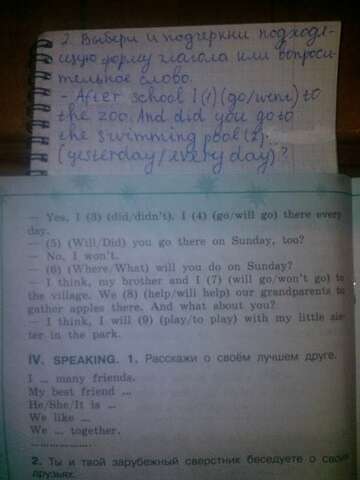 2. Выбери и подчеркни подходя-
щую форму глагола или вопроси-
тельное слово.
- After school I (1) (go/went) to
the zoo. And did you go to
the swimming pool (2)
(yesterday/every day)?
— Yes, I (3) (did/didn't). I (4) (go/will go) there every
day.
— (5) (Will/Did) you go there on Sunday, too?
— No, I won't.
— (6) (Where/What) will you do on Sunday?
— I think, my brother and I (7) (will go/won't go) to
the village. We (8) (help/will help) our grandparents to
gather apples there. And what about you?
— I think, I will (9) (play/to play) with my little sis-
ter in the park.
IV. SPEAKING. 1. Расскажи о своём лучшем друге.
I ... many friends.
My best friend ...
He/She/It is ...
We like ...
We ... together.
....................
2. Ты и твой зарубежный сверстник беседуете о своих
друзьях.